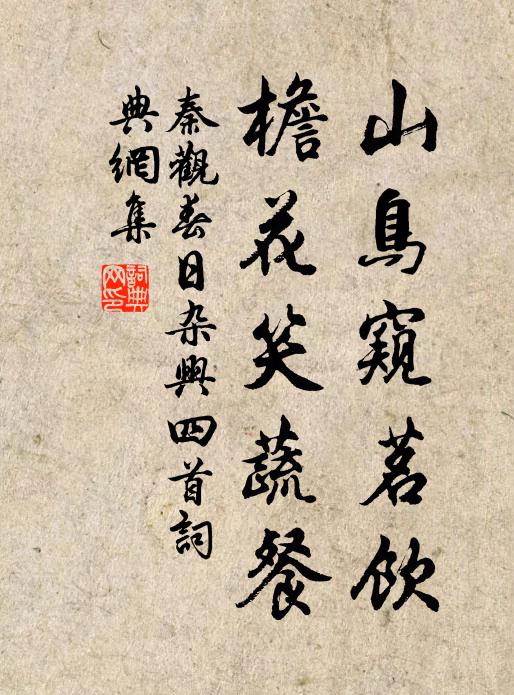 山鳥窺茗飲
檐花笑蔬餐
秦觀春日杂興四首詞
典網集
詞典网印